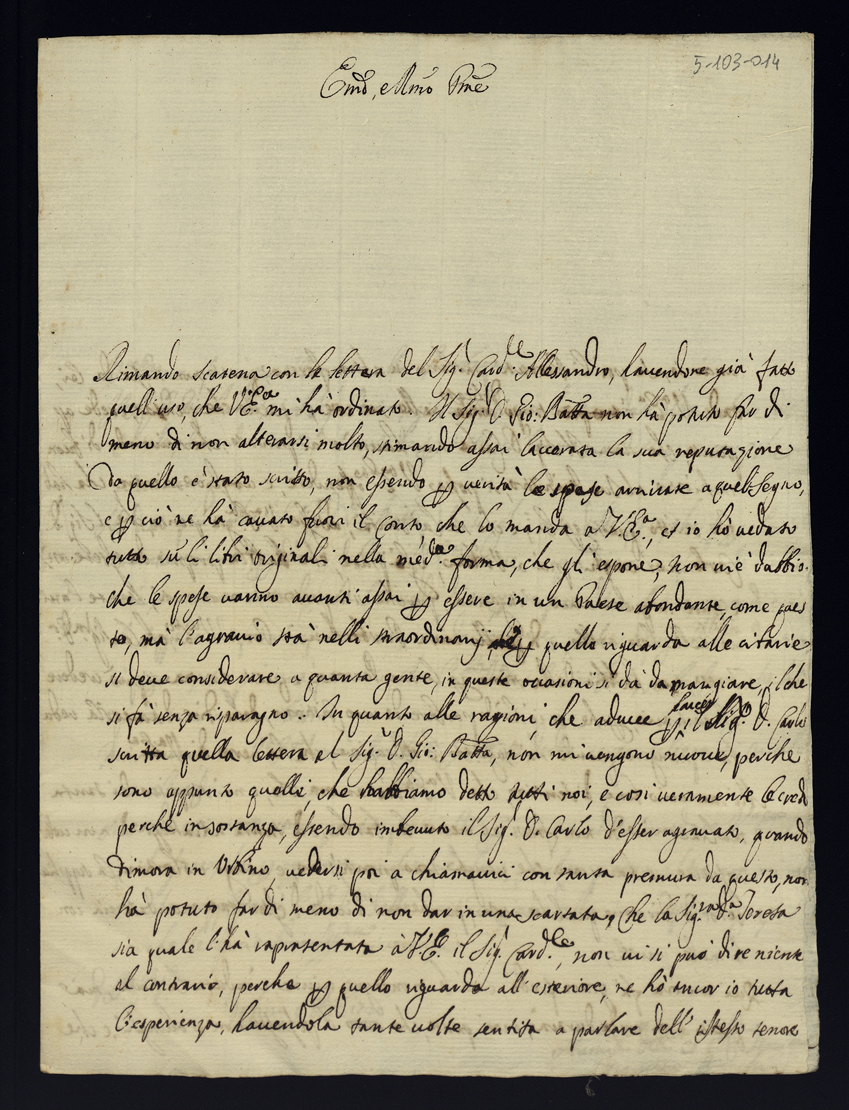 5-103-014
Em̃o, e Rm̃o Pñe
Rimando scatena con la lettera del Sig.r Card.le Alessandro, havendone già fatto
quell'uso, che V.Ea. mi hà ordinato. Il Sig.r D. Gio: Batta non hà potuto far di
meno di non alterarsi molto, stimando assai lacerata la sua reputazione
da quello è stato scritto, non essendo p verità le spese arrivate a quel segno,
e p ciò ne hà cavato fuori il conto che lo manda a V.Ea., et io hò vedato
tutto sù li libri originali nella med.a forma, che gl'espone; Non vi è dubbio.
che le spese vanno avanti assai p essere in un Paese abondante, come ques
to, mà l'agravio stà nelli straordinarij, p quello riguarda alle citarie
si deve considerare a quanta gente, in queste occasioni si dà da mangiare, il che
si fà senza risparagno. In quanto alle ragioni, che aduce p il Sig.r D. Carlo
scritta quella lettera al Sig.r D. Gio: Batta, non mi vengono nuove, perche
sono appunto quelle, che habbiamo dette tutti noi, e così veramente le credo
perche in sostanza, essendo imbevuto il Sig.r D. Carlo d'esser agravato, quando
dimora in Urbino, vedersi poi a chiamarvici con tanta premura da questo, non
hà potuto far di meno di non dar in una scartata, Che la Sig.ra D.a Teresa
sia quale l'hà rapresentata à V.E. il Sig.r Card.le, non vi si può dire niente
al contrario, perche p quello riguarda all'esteriore, ne hò ancor io tutta
l'esperienza, havendola tante volte sentita a parlare dell'istesso tenore